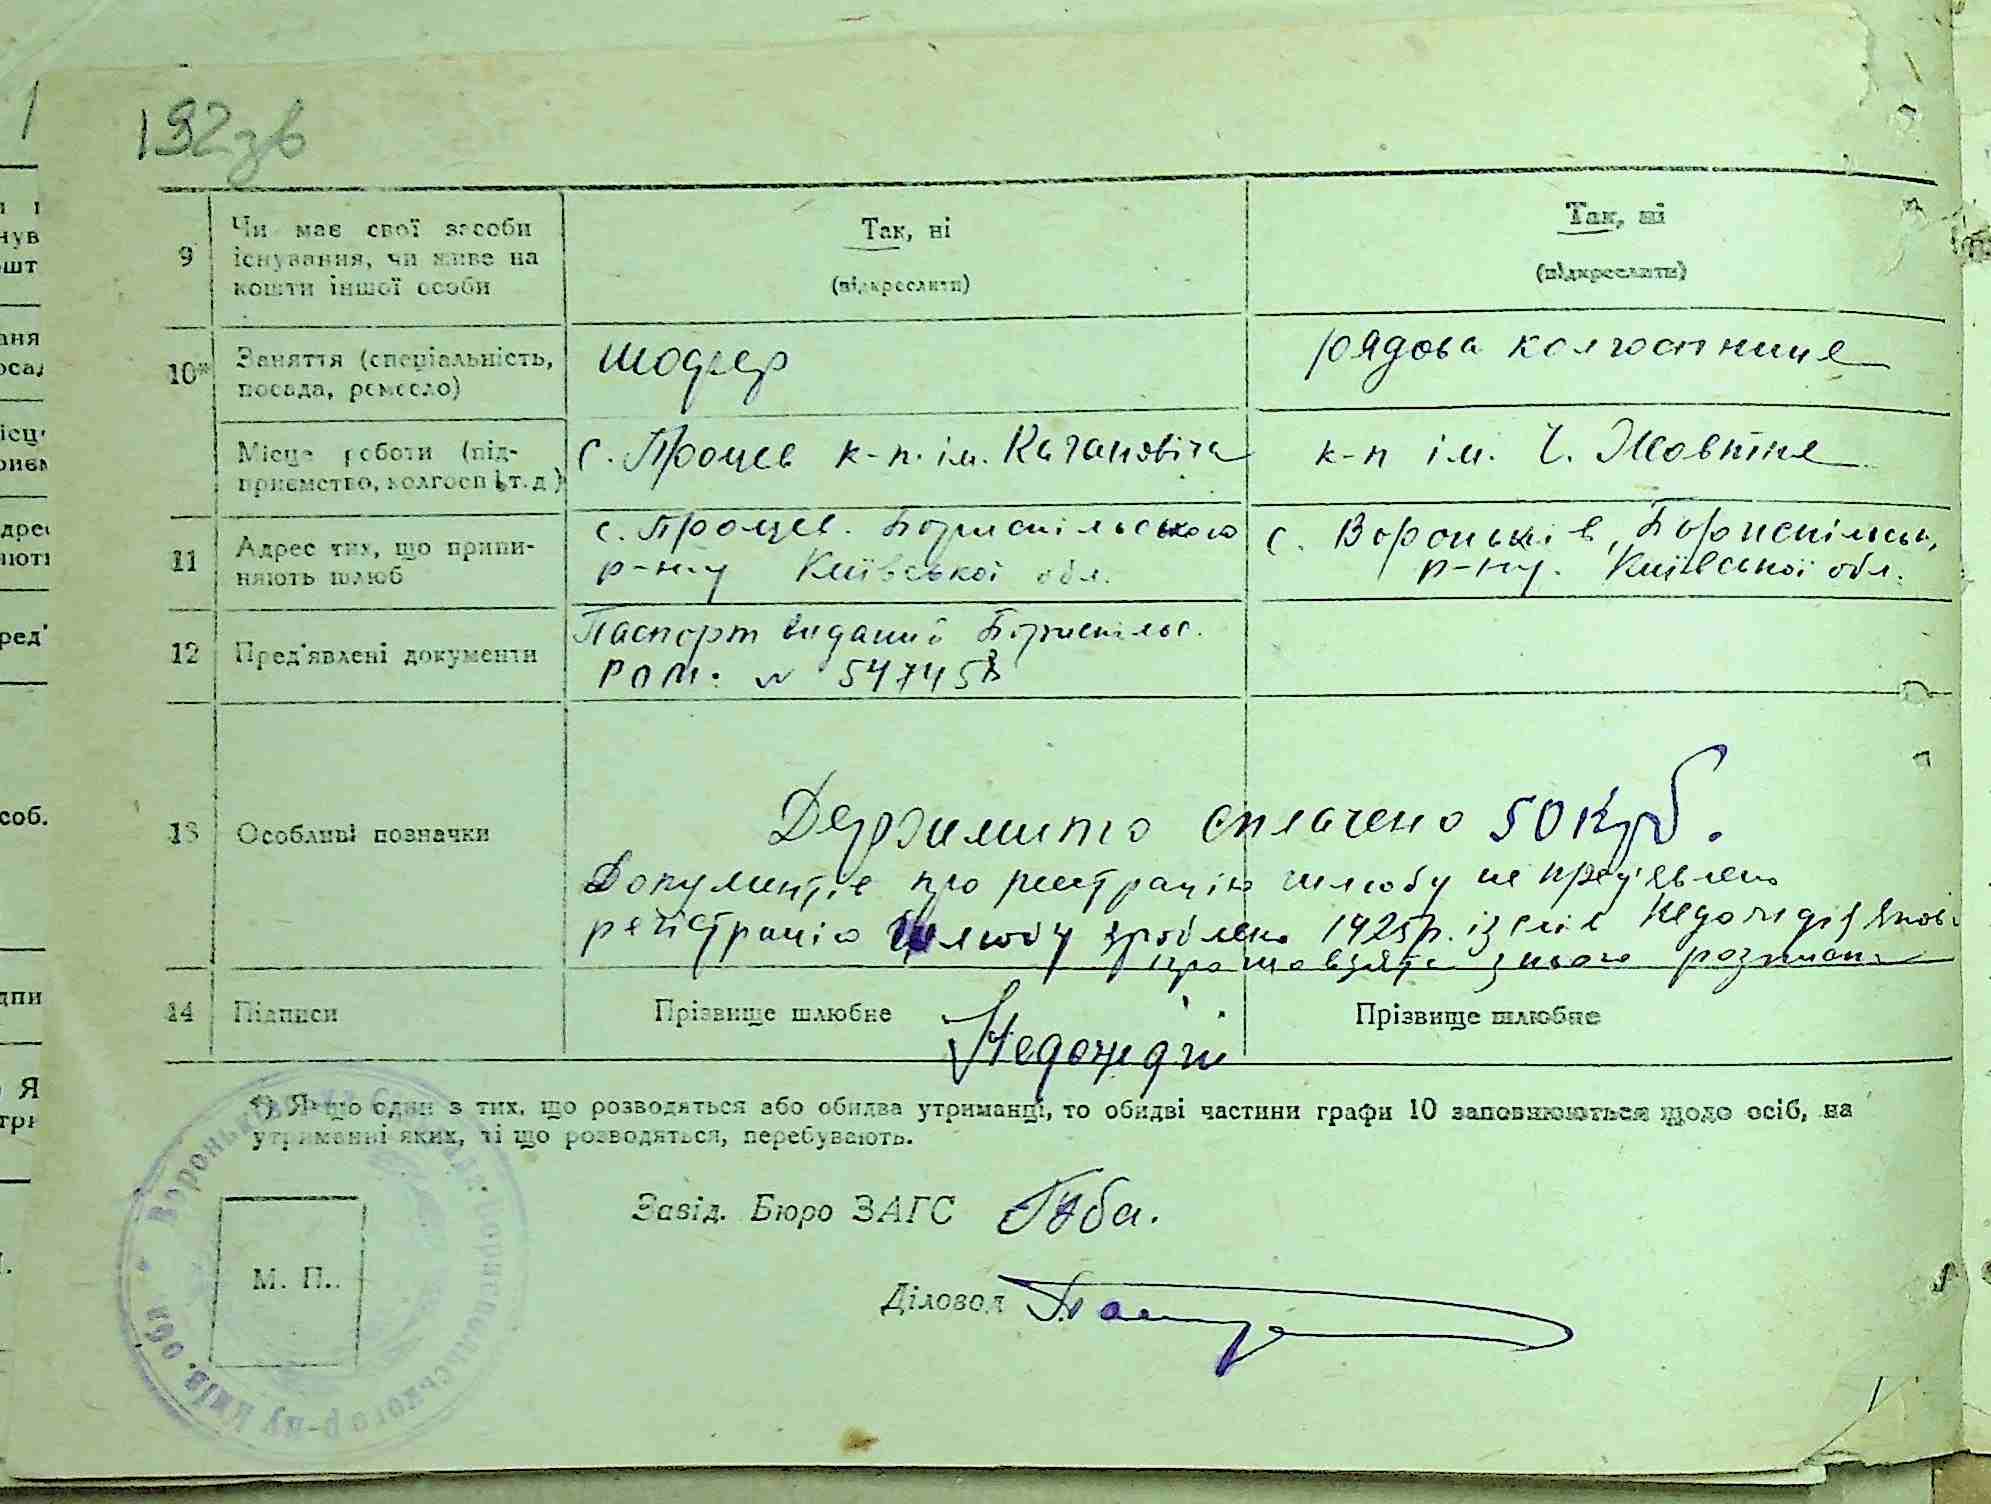 192зв
9
Чи має свої засоби
існування, чи живе на
кошти іншої особи
Так, ні
(підкреслити)
Так, ні
(підкреслити)
10*
Заняття (спеціальність,
посада, ремесло)
шофер
рядова колгоспниця
Місце роботи (під-
приємство, колгосп і т. д.)
с. Процев к-п. ім. Кагановіча
к-п ім. Ч. Жовтня
11
Адрес тих, що припи-
няють шлюб
с. Процев. Бориспільського
р-ну Київської обл.
с. Вороньків, Бориспільськ,
р-ну. Київської обл.
12
Пред'явлені документи
Паспорт виданий Бориспільс.
РОМ: № 547458
13
Особливі позначки
Держмито сплачено 50 крб.
Документів про реєстрацію шлюбу не пред'явлено
регістрацію шлюбу зроблено 1925р. із слів
про що взято з нього розписку
14
Підписи
Прізвище шлюбне
Прізвище шлюбне
*) Якщо один з тих, що розводяться або обидва утриманці, то обидві частини графи 10 заповнюються щодо осіб, на
утриманні яких, ті що розводяться, перебувають.
Завід. Бюро ЗАГС
Діловод
М. П.
Бориспольського р-ну Київ. обл.